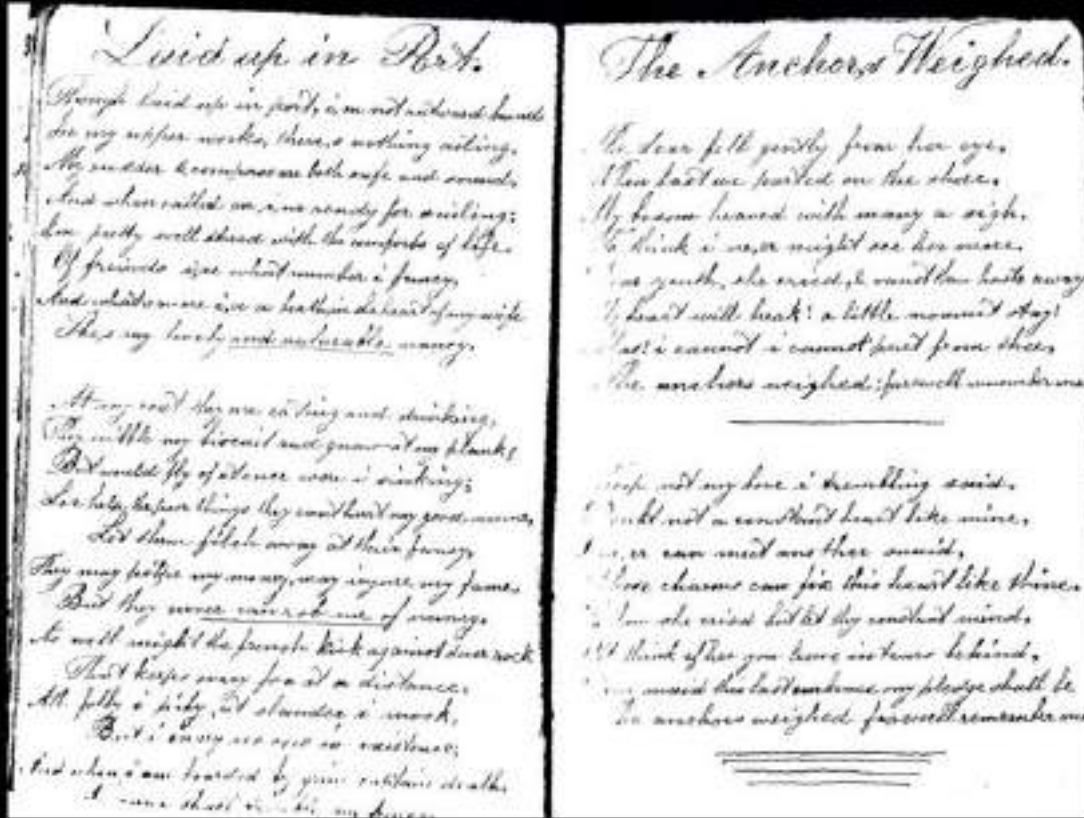 Laid up in Port.
Though laid up in port, i,m not outward bound
for my upper works, there,s nothing ailing,
My rudder & compass are both safe and sound,
And when called on, i,m ready for sailing;
I,m pretty well stored with the comforts of life.
Of freinds i,ve what number i fancy,
And what,s more i,ve a heart in the heart of my wife
She,s my lovely and valuable nancy.
At my cost they are eating and drinking,
They nibble my biscuit and gnaw at my planks
But would fly of at once were i sinking;
Let them filch away at their fancy,
They may my money, may injure my fame.
But they never can rob me of nancy.
As well might the french kick against dover rock
That keeps every foe at a distance.
All folly i pity, at slander i mock,
But i envy no one in existence;
And when i am boarded by grim captain death
The Anchors Weighed.
tear fell gently from her eye.
When last we parted on the shore.
My bosom heaved with many a sigh.
To think i ne,er might see her more.
youth, she cried, & canst thou haste away
heart will break! a little moment stay!
i cannot i cannot part from thee,
The anchors weighed: farewell remember me
not my love i trembling said.
not a constant heart like mine.
can meet another maid,
Whose charms can fix this heart like thine.
she cried but let thy constant mind.
think of her you leave in tears behind.
maid this last embrace my pledge shall be
The anchors weighed farewell remember me